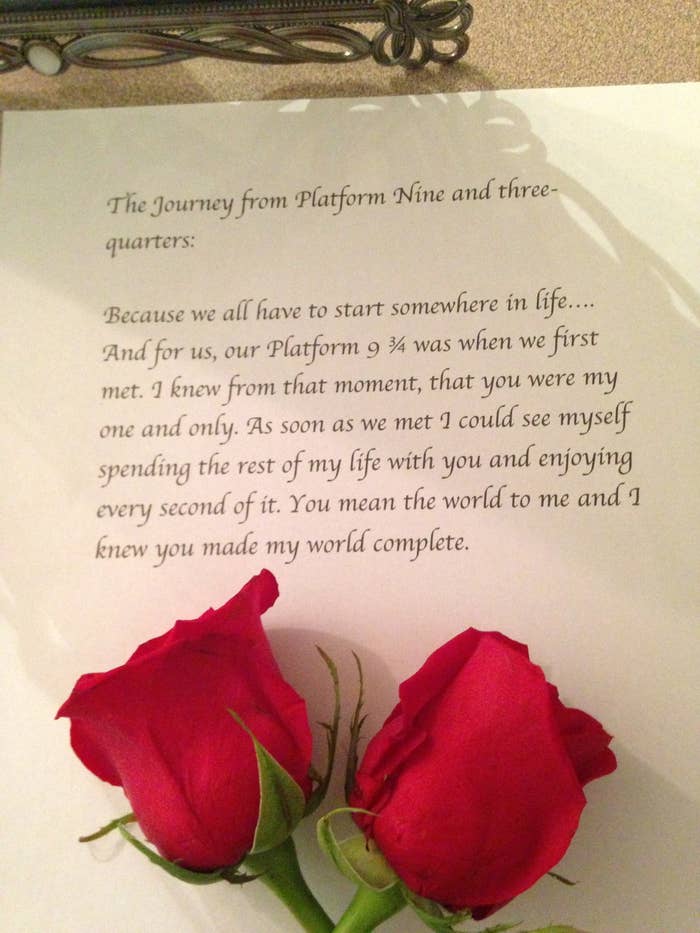 The Journey from Platform Nine and three-
quarters:
Because we all have to start somewhere in life....
And for us, our Platform 9 ¾ was when we first
met. I knew from that moment, that you were my
one and only. As soon as we met I could see myself
spending the rest of my life with you and enjoying
every second of it. You mean the world to me and I
knew you made my world complete.